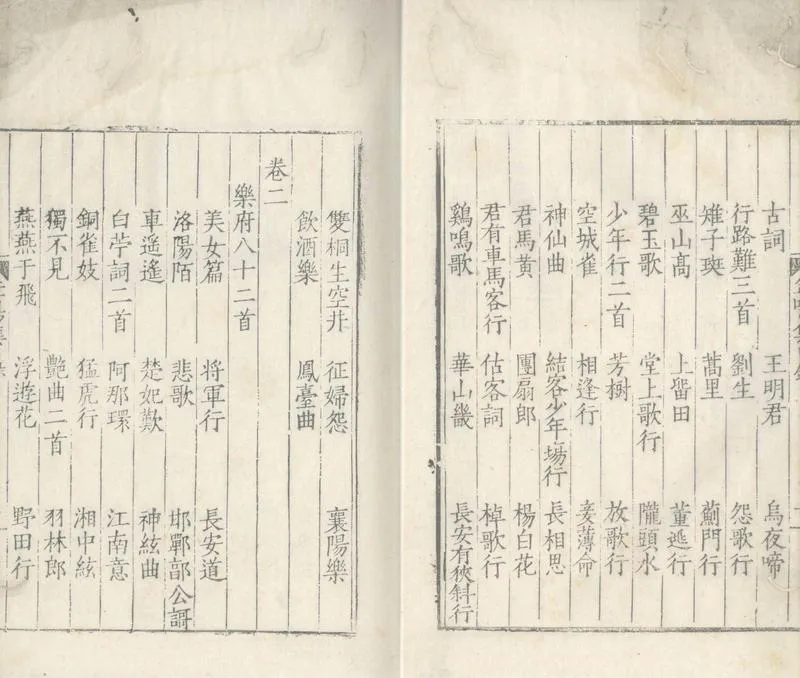 古詞 王明君 烏夜啼
行路難三首 劉生 怨歌行
雉子斑 蒿里 薊門行
巫山高 上留田 董逃行
碧玉歌 堂上歌行 隴頭水
少年行二首 芳樹 放歌行
空城雀 相逢行 妾薄命
神仙曲 結客少年場行 長相思
君馬黃 團扇郎 楊白花
君有車馬客行 估客詞 棹歌行
鷄鳴歌 華山畿 長安有狹斜行
雙桐生空井 征婦怨 襄陽樂
飲酒樂 鳳臺曲
卷二
樂府八十二首
美女篇 將軍行 長安道
洛陽陌 悲歌 邯鄲部公謌
車遙遙 楚妃歎 神絃曲
白苧詞二首 阿那環 江南意
銅雀妓 猛虎行 湘中絃
獨不見 艷曲二首 羽林郎
燕燕于飛 浮遊花 野田行